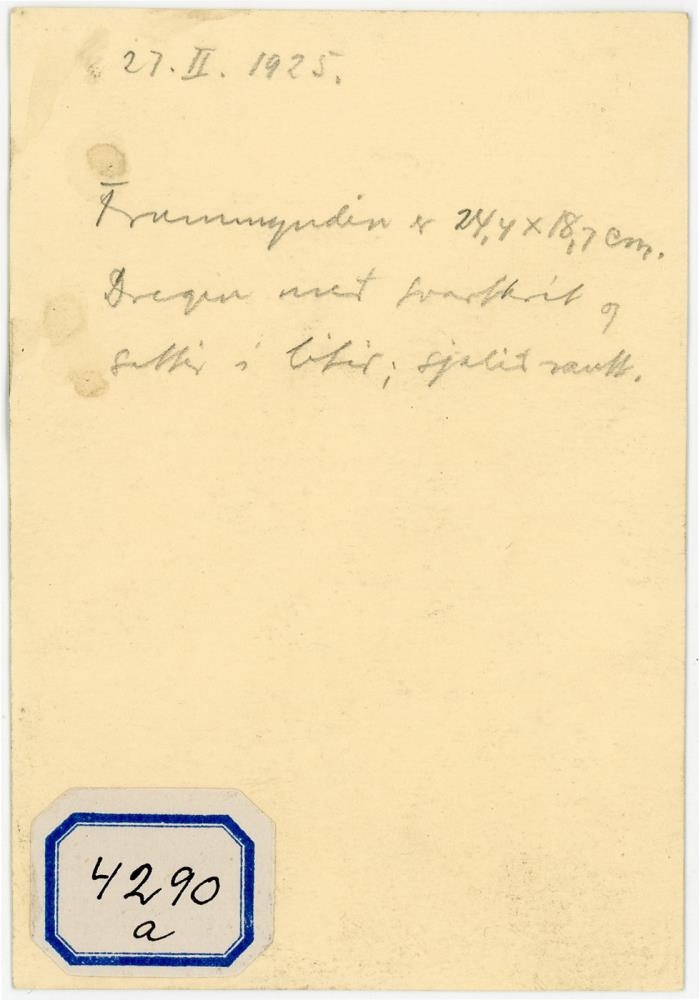 27. II. 1925.
Frummyndin er 24,4 × 18,7 cm.
Dregin með svartkrít og
settir í litir; sjálið rautt.
4290
a